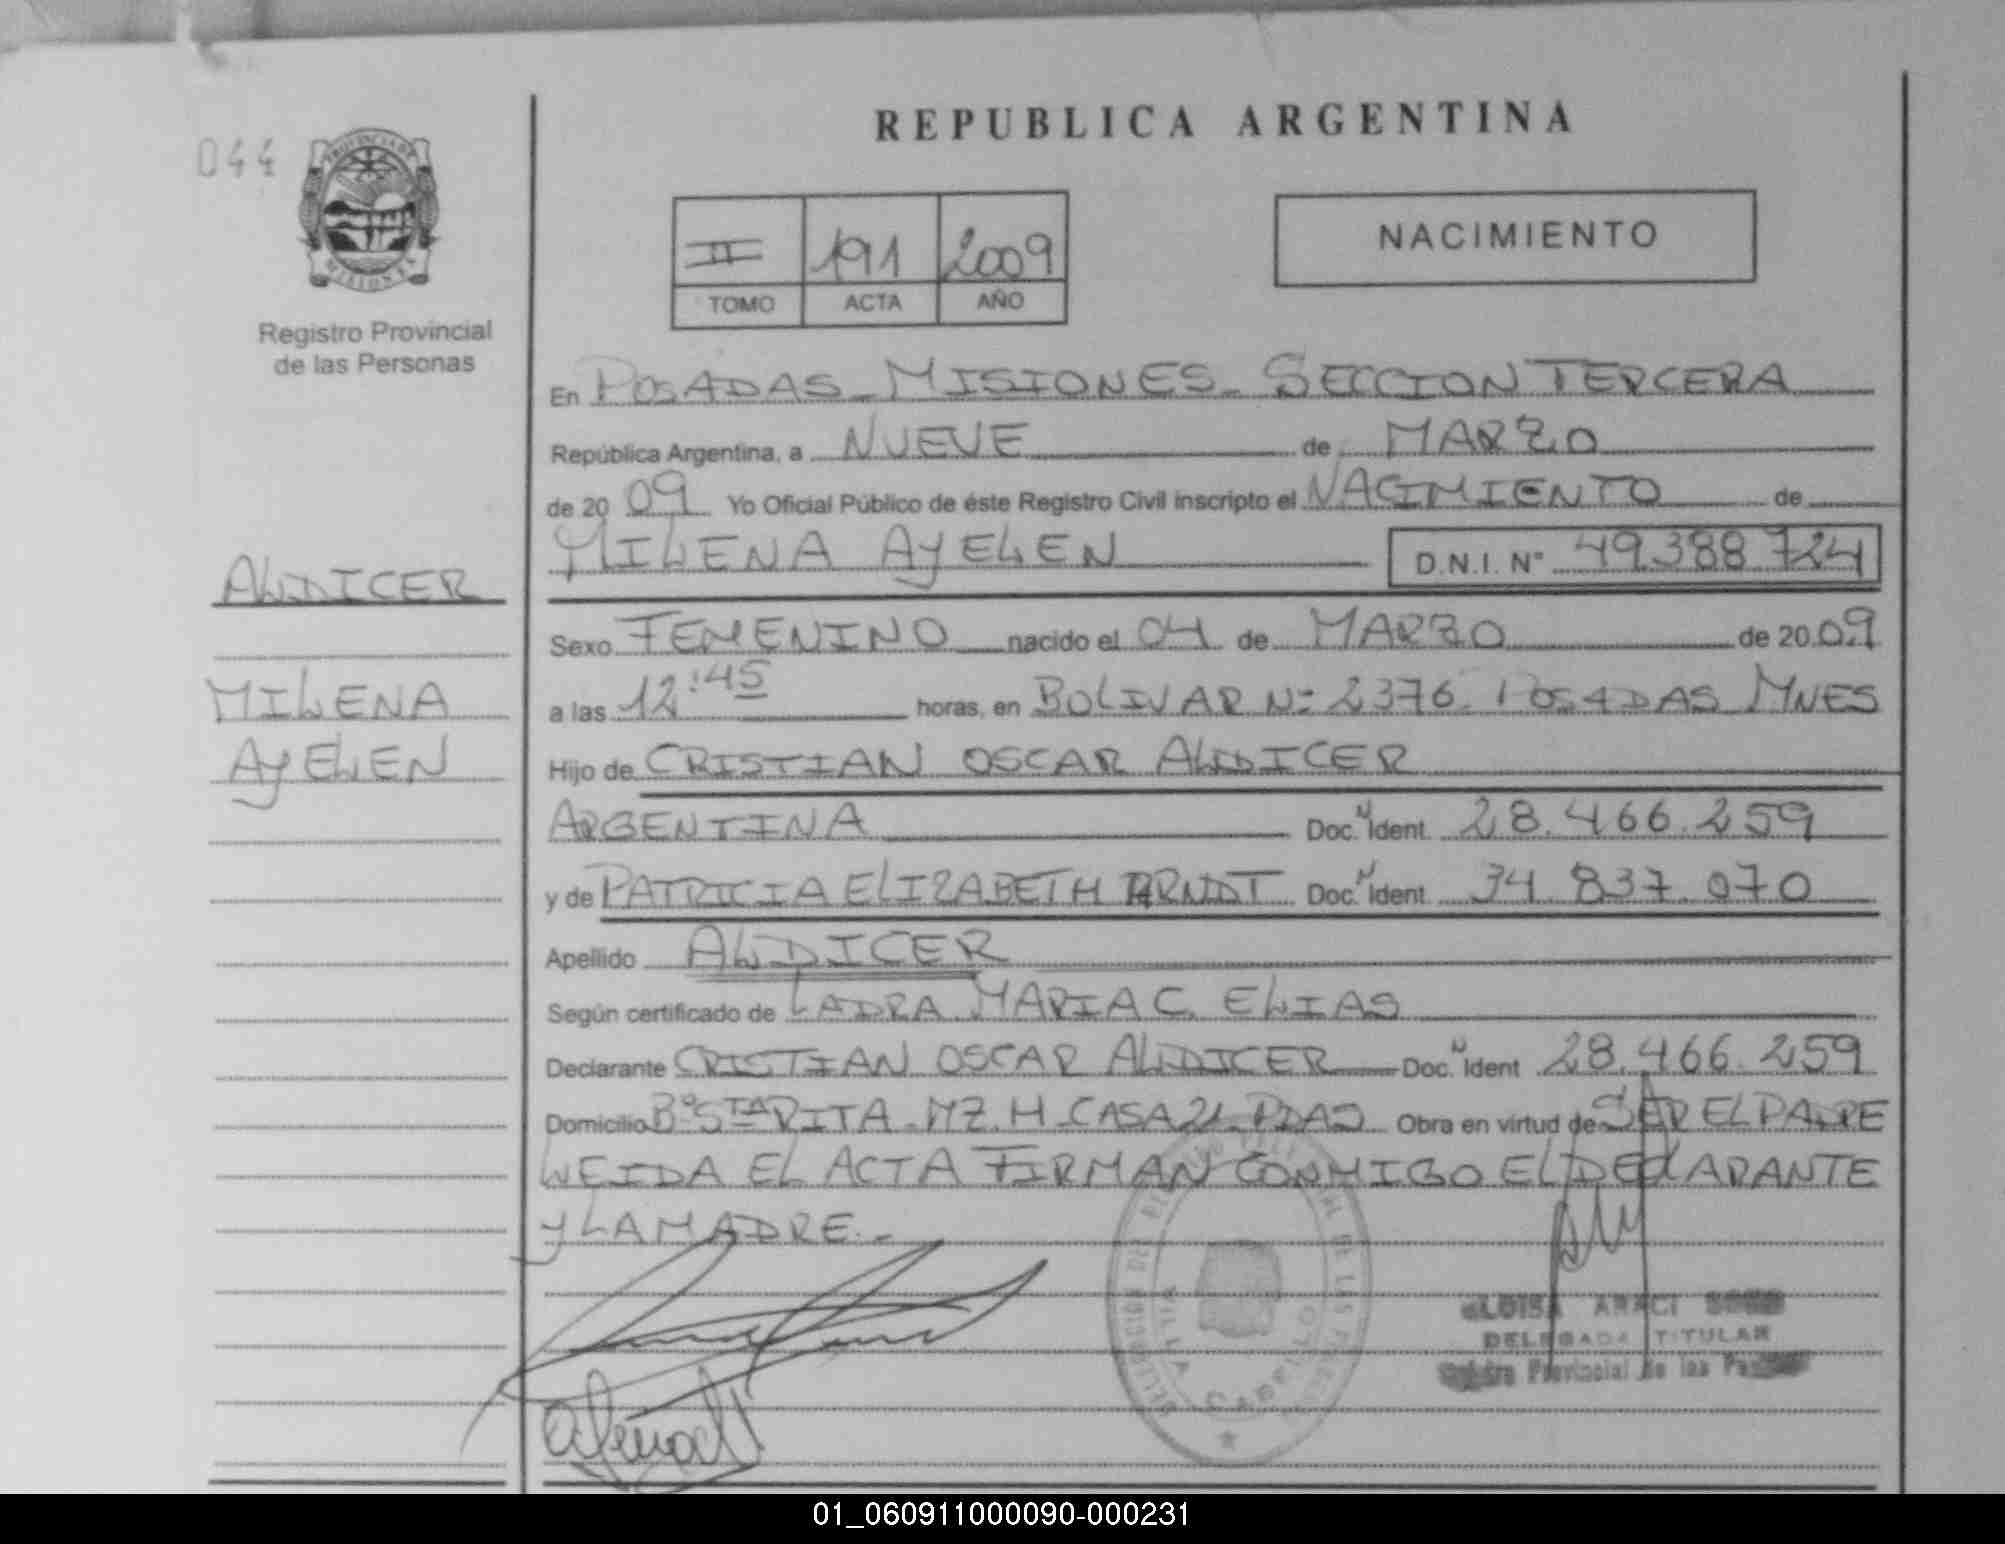 REPUBLICA ARGENTINA
044
PROVINCIA DE
MISIONES
Registro Provincial
de las Personas
NACIMIENTO
II 191 2009
TOMO ACTA AÑO
En POSADAS - MISIONES - SECCION TERCERA
República Argentina, a NUEVE de MARZO
de 20 09 Yo Oficial Público de éste Registro Civil inscripto el NACIMIENTO de
MILENA AYELEN D.N.I. N° 49.388.724
ALDICER
MILENA
AYELEN
Sexo FEMENINO nacido el 04 de MARZO de 20 09
a las 12:45 horas, en BOLIVAR N: 2376. POSADAS MNES
Hijo de CRISTIAN OSCAR ALDICER
ARGENTINA Doc. Ident. 28.466.259
y de PATRICIA ELIZABETH ARNDT Doc. Ident. 34.837.070
Apellido ALDICER
Según certificado de LADRA MARIA C. ELIAS
Declarante CRISTIAN OSCAR ALDICER Doc. Ident 28.466.259
Domicilio B° STA RITA - MZ. H - CASA 21 - PDAS Obra en virtud de SER EL PADRE
LEIDA EL ACTA FIRMAN CONMIGO EL DECLARANTE
Y LA MADRE.-
VILLA CABELLO
ARACI
DELEGADA TITULAR
Provincial de las
01_060911000090-000231